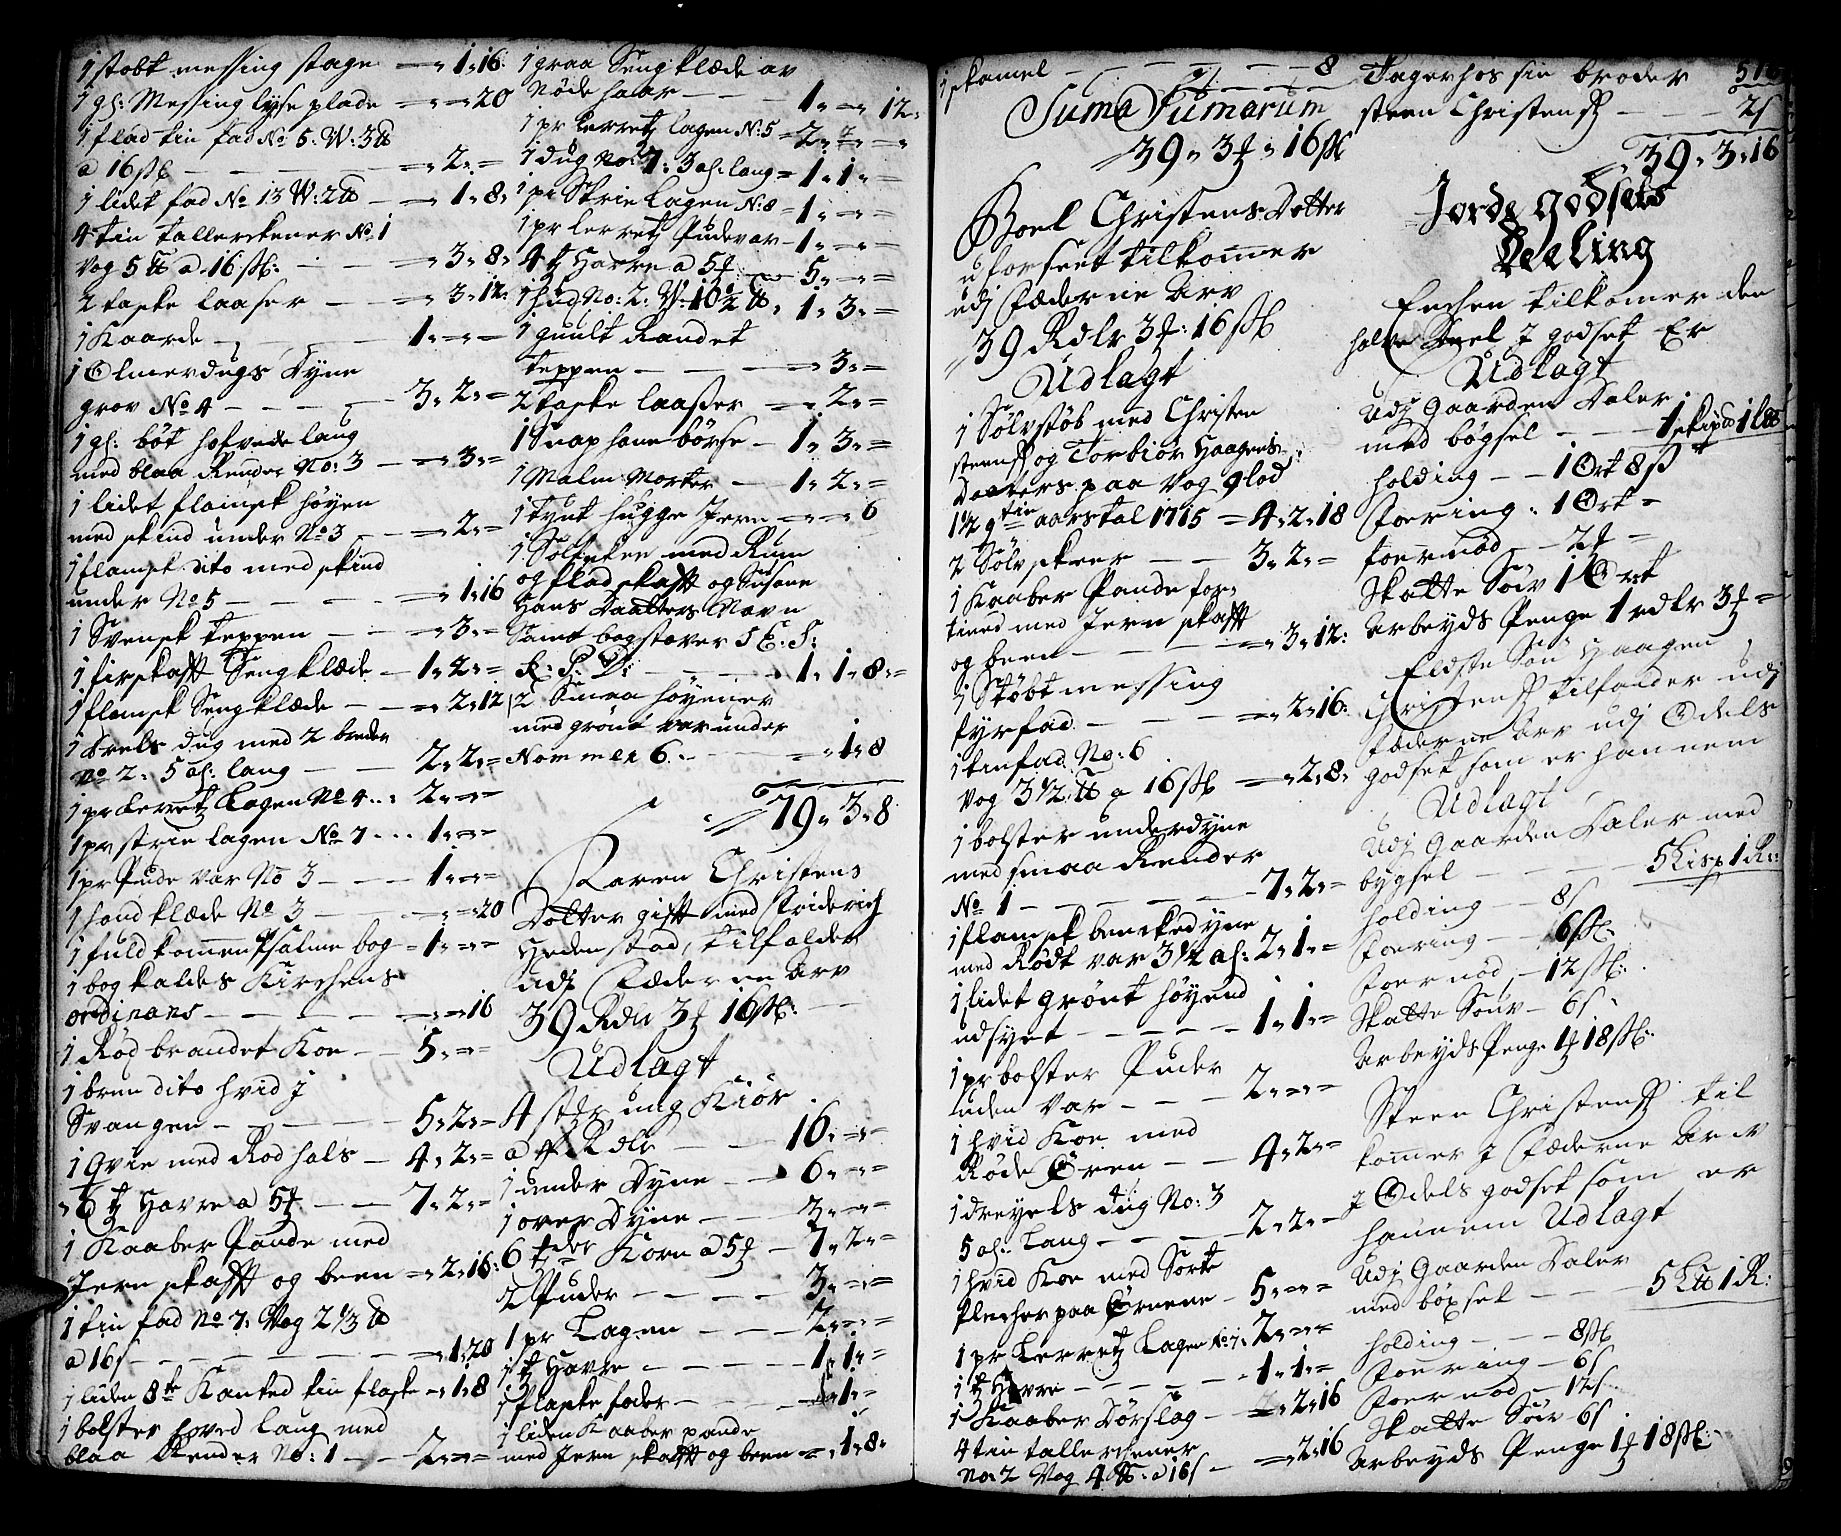 1 støbt messing stage — " 1 " 16
1 gl: Messing lyse plade — " — " 20
1 flad tin fad No 5: W: 3 ℔
a 16 sk — " 2 " =
1 lidet fad No 13 W: 2 ℔ — " 1 " 8
4 tin tallerckener No 1
Vog 5 ℔ a 16 sk: — " 3 " 8
2 taske laaser — " 3 " 12
1 Kaarde — 1 " = " =
1 Olmerdugs Dyne
grov No 4 — 3 " 2 " =
1 gl: bøt hofvede lang
med blaa Render No: 3 — " 3 " =
1 lidet flamsk høyen
med skind under No 3 — " 2 " =
1 flamsk dito med skind
under No 5 — " 1 " 16
1 Svensk teppen — " 3 " =
1 firskafft Sengklæde — 1 " 2 " =
1 flamsk Sengklæde — " 2 " 12
1 Drels dug med 2 breder
No 2: 5 al: lang — 2 " 2 " =
1 pr Lerretz Lagen No 4 — 2 " = " =
1 pr strie lagen No 7 — 1 " = " =
1 pr Pude var No 3 — 1 " = " =
1 hand klæde No 3 — " = " 20
1 fuldkommen Psalme bog — 1 " = " =
1 bog kaldes Kirchens
ordinans — " = " 16
1 Rød brandet Koe — 5 " = " =
1 brun dito hvid J
Svangen — 5 " 2 " =
1 Qvie med Rød hals — 4 " 2 " =
6 tz Havre a 5 ʒ — 7 " 2 " =
1 Kaaber Pande med
Jern skafft og been — " 2 " 16
1 tin fad No 7: Vog 2 1/3 ℔
a 16 s — " 1 " 20
1 liden 8te Kanted tin flaske — " 1 " 8
1 bolster hoved lang med
blaa Render No: 1 — 2 " = " =
1 graa Sengklæde av
Nøde haar — 1 " — " 12
1 pr Lerretz lagen No: 5 — 2 " = " =
1 dug No: 7: 3 al: lang — 1 " 1 " =
1 pr Strie Lagen No: 8 — 1 " = " =
1 pr Lerretz Pudevar — 1 " = " =
4 tz Havre a 5 ʒ — 5 " = " =
1 hud No: 2: W: 10 1/2 ℔ 1 " 3 " =
1 guult Randet
teppen — " 3 " =
2 taske laaser — " 2 " =
1 Snaphane børse — 1 " 3 " =
1 Malm Morter — 1 " 2 " =
1 tynt hugge Jern — " = " 6
1 Sølfskee med Rum
og flad skafft og Susane
Hans Daatters Navn
Samt bogstaver S E: S:
K: P: D: — 1 " 1 " 8
2 Smaa høyener
med grønt var under
Nommer 6 — " 1 " 8
79 " 3 " 8
Karen Christens
Dotter gift med Friderich
Hedenstad, tilfalder
udj Fæderne Arv
39 Rdlr 3 ʒ 16 sk:
Udlagt
4 stkr ung Kiør
a 4 Rdlr — 16 " = " =
1 under Dyne — 6 " = " =
1 over Dyne — 3 " = " =
6 tder Korn a 5 ʒ — 7 " 2 " =
2 Puder — 3 " = " =
1 pr Lagen — 2 " = " =
1 tz Havre — 1 " 1 " =
1 flaske foder — " 1 " =
1 liden Kaaber pande
med Jern skafft og been — " 1 " 8
1 skamel — " — " 8
Suma Sumarum
39 " 3 ʒ " 16 sk
Boel Christens Dotter
uforseet tilkommer
udj Fæderne Arv
39 Rdlr 3 ʒ: 16 sk
Udlagt
1 Sølvstøb med Christen
steens og Torbiør Haagens
Daatters paa Vog 9 lod
1 1/2 qtin aarstal 1715 — 4 " 2 " 18
2 Sølv skeer — 3 " 2 " =
1 Kaaber Pande for
tined med Jern skafft
og been — " 3 " 12
1 Støbt messing
fyrfad — " 2 " 16
1 tinfad No: 6
Vog 3 1/2 ℔ a 16 sk — " 2 " 8
1 bolster underdyne
med smaa Render
No 1 — 7 " 2 " =
1 flamsk benckedyne
med Rødt var 3 1/2 al: 2 " 1 " =
1 lidet grønt høyend
udsyet — 1 " 1 " =
1 pr bolster Puder
uden Var — 2 " = " =
1 hvid Koe med
Røde Ören — 4 " 2 " =
1 dreyels dug No: 3
5 al: Lang — 2 " 2 " =
1 hvid Koe med Sorte
Plecher paa Ørnene — 5 " = " =
1 pr Lerretz Lagen No: 7: 2 " = " =
1 tz Havre — 1 " 1 " =
1 Kaaber Dørslag — " 2 " 16
4 tin tallerchener
No: 2 Vog 4 ℔: a 16 s — " 2 " 16
Tager hos sin broder 516
steen Christens — 2 s
39 " 3 " 16
Jorde godsets
Deeling
Enchen tilkommer den
halve Deel J godset Er
Udlagt
Udj Gaarden Daler
med bøgsel — 1 skipd 1 L℔
holding — 1 Ort 8 s
foering: 1 Ort =
foernød — 2 ʒ =
Skatte Sølv 1 Ort
Arbeyds Penge 1 rdlr 3 ʒ =
Eldste Søn Haagen
Christens tilfalder udj
Fæderne Arv udj Odels
godset som er hannem
Udlagt
Udj Gaarden Daler med
bygsel — 5 Lisp 1 R:
holding — 8 s
foering — 6 sk:
foer nød — 12 sk:
Skatte Sølv — 6 s
Arbeyds Penge 1 ʒ 18 sk:
Steen Christens til
komer J Fæderne Arv
J Odels godset som er
hannem Udlagt
Udj Gaarden Daler
med böxsel — 5 L℔ 1 R:
holding — 8 sk
foering — 6 s
foer nød — 12 s
Skatte Sølv 6 s
Arbeyds Penge 1 ʒ 18 sk: